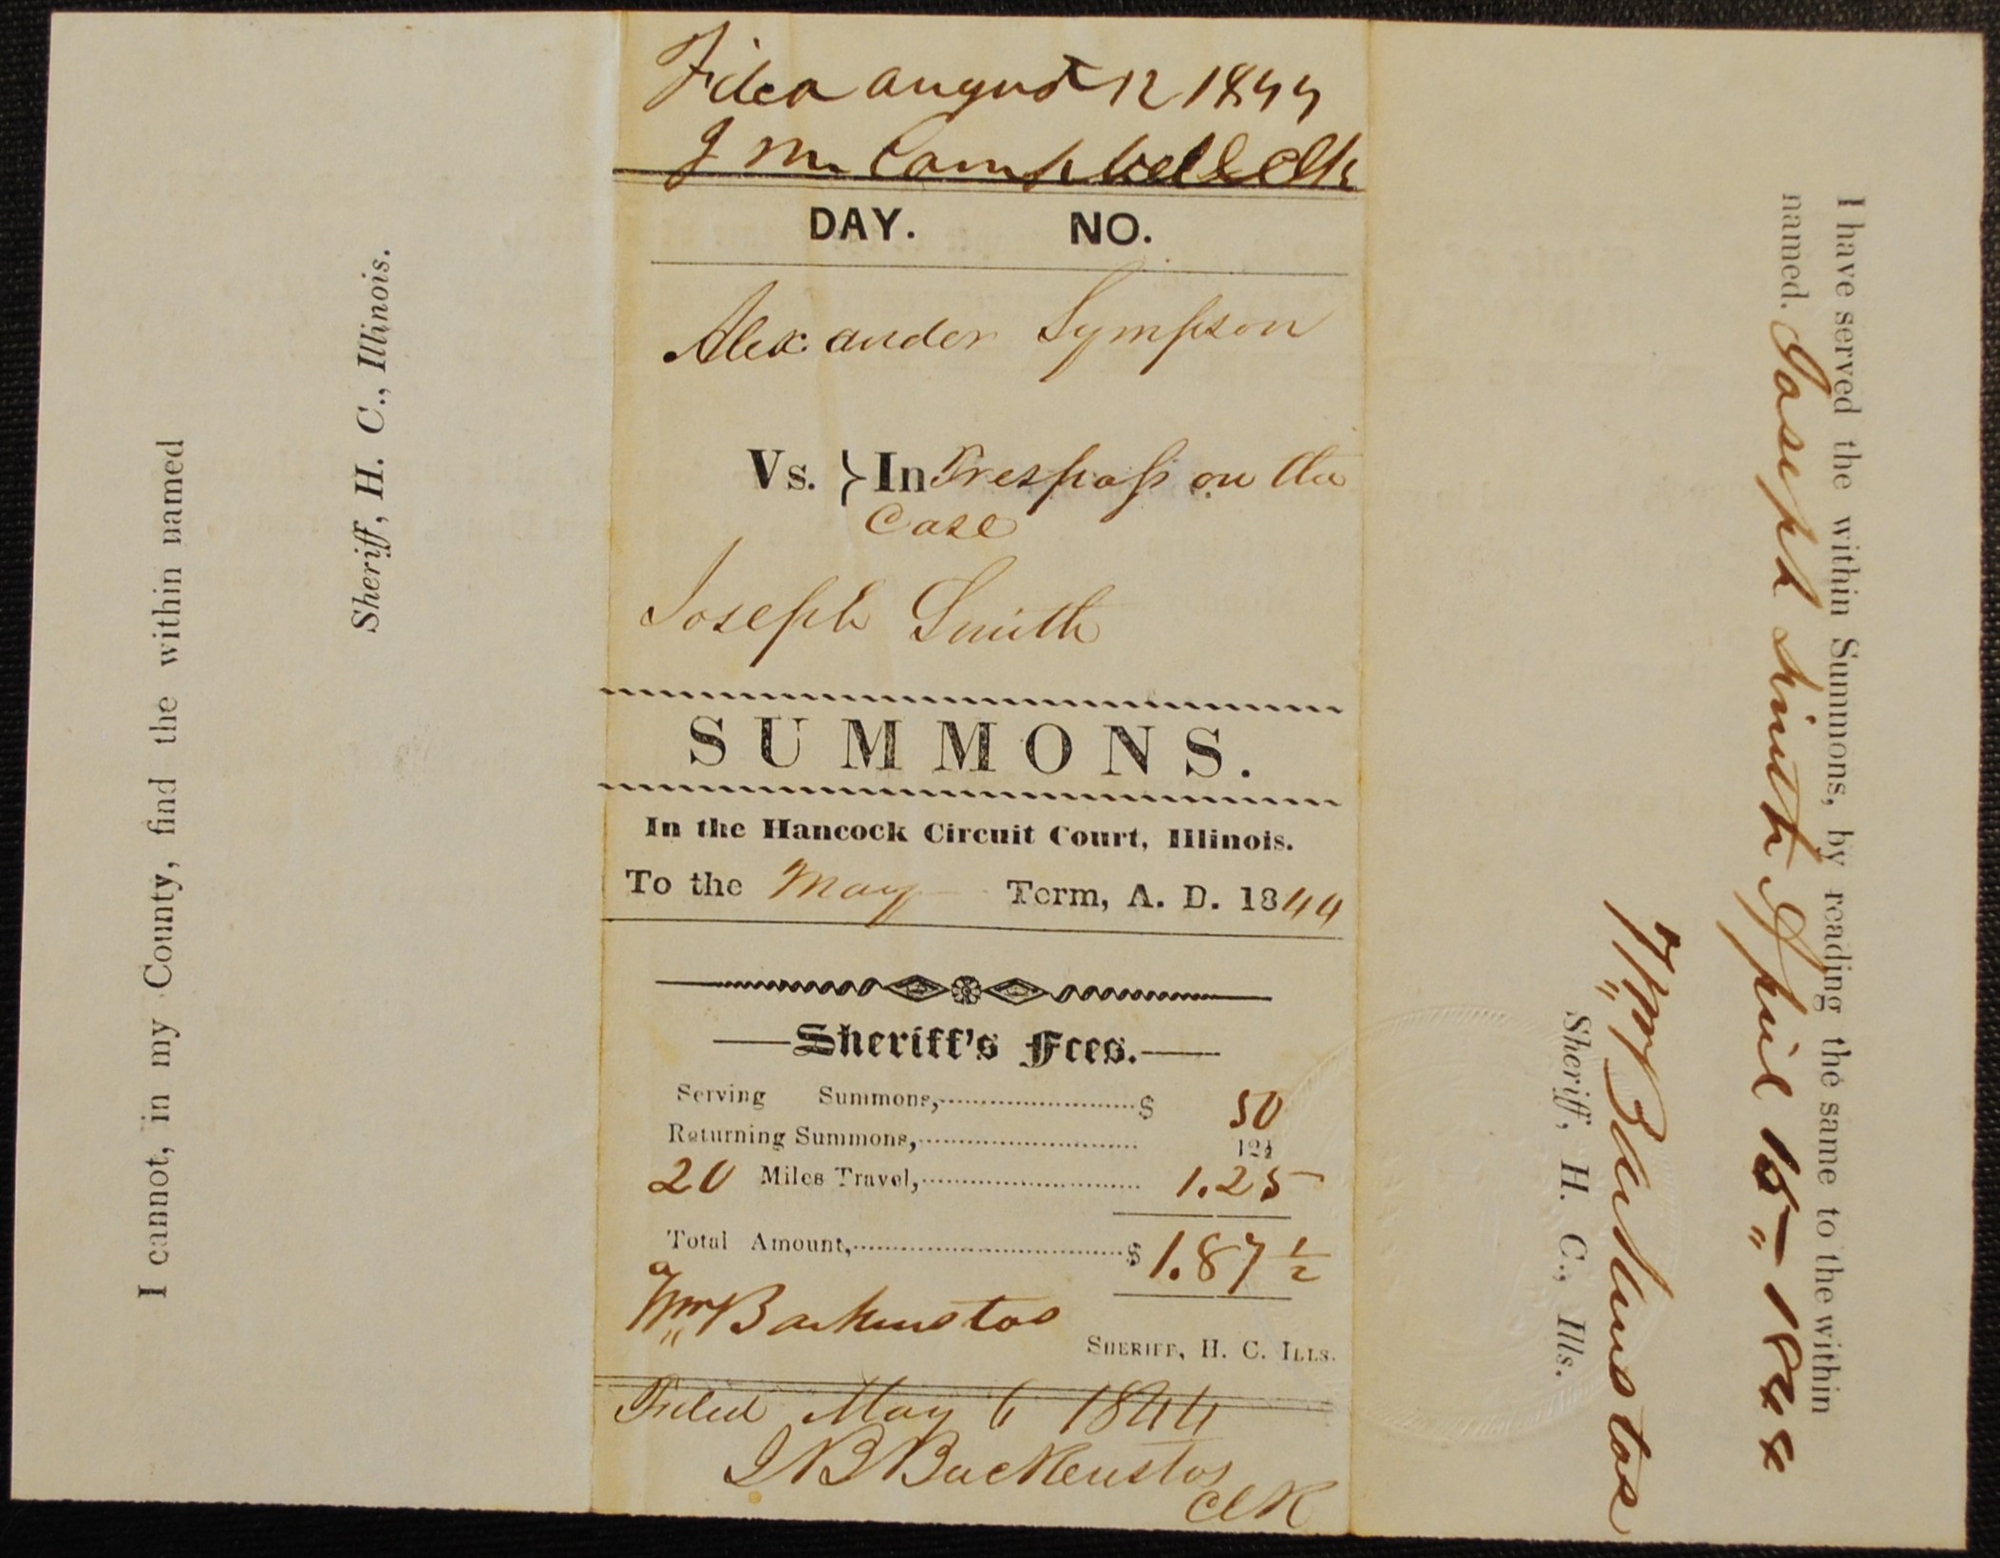 I cannot, in my County, find the within named
Sheriff, H. C., Illinois.
Filed august 12 1844
J M Campbell Clk
DAY. NO.
Alexander Sympson
Vs. } In Trespass on the
Case
Joseph Smith
SUMMONS.
In the Hancock Circuit Court, Illinois.
To the May Term, A. D. 1844
Sheriff's Fees.
Serving Summons, $ 50
Returning Summons, 12½
20 Miles Travel, 1.25
Total Amount, $ 1.87½
Wm Backenstos
SHERIFF, H. C. ILLS.
Filed May 6 1844
J B Backenstos
Clk
I have served the within Summons, by reading the same to the within
named. Joseph Smith April 15" 1844
Wm Backenstos
Sheriff, H. C., Ills.